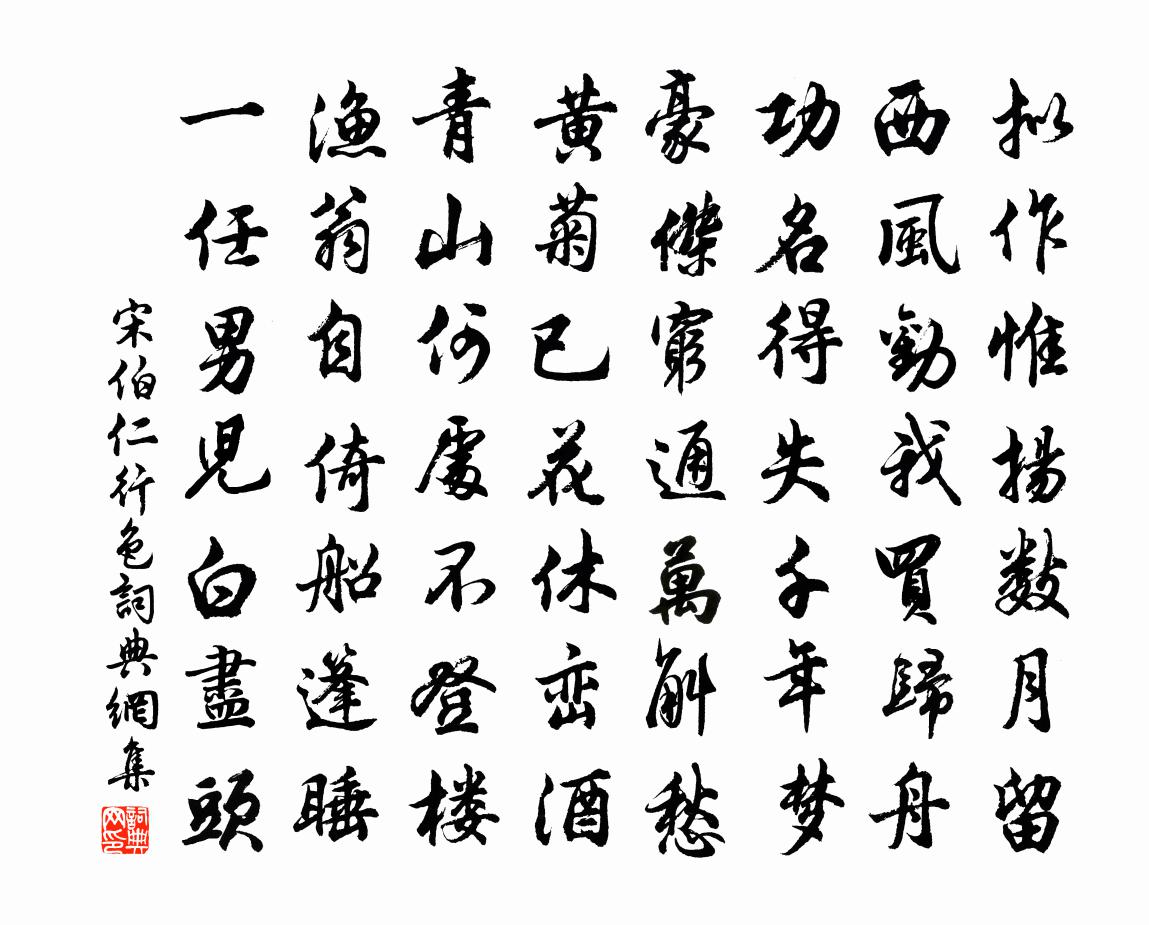 拟作惟揚數月留
西風勸我買歸舟
功名得失千年梦
豪傑窮通萬斛愁
黄菊已花休峦酒
青山何處不登楼
漁翁自倚船篷睡
一任男児白盡頭
宋伯仁行色詞典網集
詞典网印